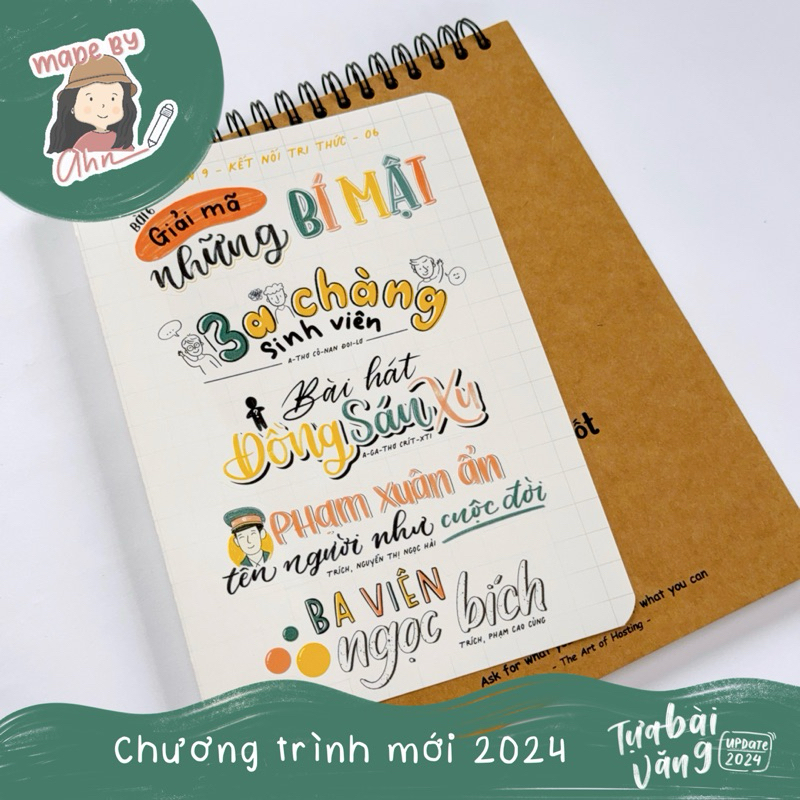 MADE BY
ahn
N 9 - KẾT NỐI TRI THỨC - 06
BÀI 6
Giải mã
những BÍ MẬT
3a chàng
sinh viên
A-THƠ CÔ-NAN ĐOI-LƠ
Bài hát
Đồng Sáu Xu
A-GA-THƠ CRÍT-XTI
PHạM xuân ẩn
tên người như cuộc đời
TRÍCH, NGUYỄN THỊ NGỌC HẢI
BA VIÊN
ngọc bích
TRÍCH, PHẠM CAO CỦNG
ốt
what you can
Ask for what yo
- The Art of Hosting -
Chương trình mới 2024
Tựa bài
văng
UPDATE
2024